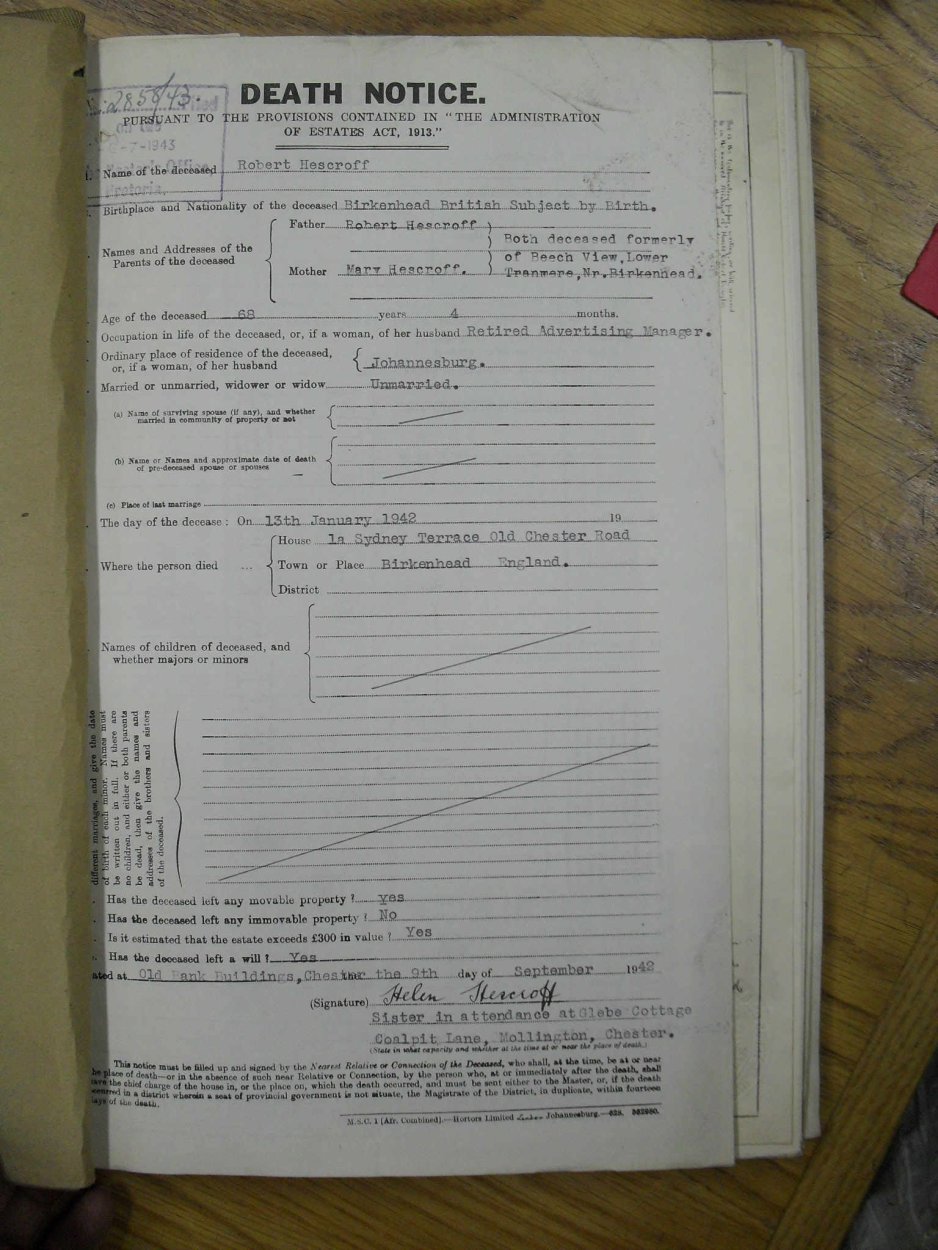 2858/43.
DEATH NOTICE.
PURSUANT TO THE PROVISIONS CONTAINED IN "THE ADMINISTRATION
OF ESTATES ACT, 1913."
-7-1943
Pretoria.
Name of the deceased Robert Hescroff
Birthplace and Nationality of the deceased Birkenhead British Subject by Birth.
Names and Addresses of the
Parents of the deceased
Father Robert Hescroff
Mother Mary Hescroff.
Both deceased formerly
of Beech View, Lower
Tranmere, Nr. Birkenhead.
Age of the deceased 68 years 4 months.
Occupation in life of the deceased, or, if a woman, of her husband Retired Advertising Manager.
Ordinary place of residence of the deceased,
or, if a woman, of her husband
Johannesburg.
Married or unmarried, widower or widow Unmarried.
(a) Name of surviving spouse (if any), and whether
married in community of property or not
(b) Name or Names and approximate date of death
of pre-deceased spouse or spouses
(c) Place of last marriage
The day of the decease: On 13th January 1942 19
Where the person died ...
House 1a Sydney Terrace Old Chester Road
Town or Place Birkenhead England.
District
Names of children of deceased, and
whether majors or minors
different marriages, and give the date
of birth of each minor. Names must
be written out in full. If there are
no children, and either or both parents
be dead, then give the names and
addresses of the brothers and sisters
of the deceased.
Has the deceased left any movable property? yes
Has the deceased left any immovable property? No
Is it estimated that the estate exceeds £300 in value? Yes
Has the deceased left a will? Yes
ated at Old Bank Buildings, Chester the 9th day of September 1942
(Signature) Helen Hescroff
Sister in attendance at Glebe Cottage
Coalpit Lane, Mollington, Chester.
(State in what capacity and whether at the time at or near the place of death.)
This notice must be filled up and signed by the Nearest Relative or Connection of the Deceased, who shall, at the time, be at or near
he place of death—or in the absence of such near Relative or Connection, by the person who, at or immediately after the death, shall
ave the chief charge of the house in, or the place on, which the death occurred, and must be sent either to the Master, or, if the death
ccurred in a district wherein a seat of provincial government is not situate, the Magistrate of the District, in duplicate, within fourteen
ays of the death.
M.S.C. 1 [Afr. Combined].—Hortors Limited Johannesburg.